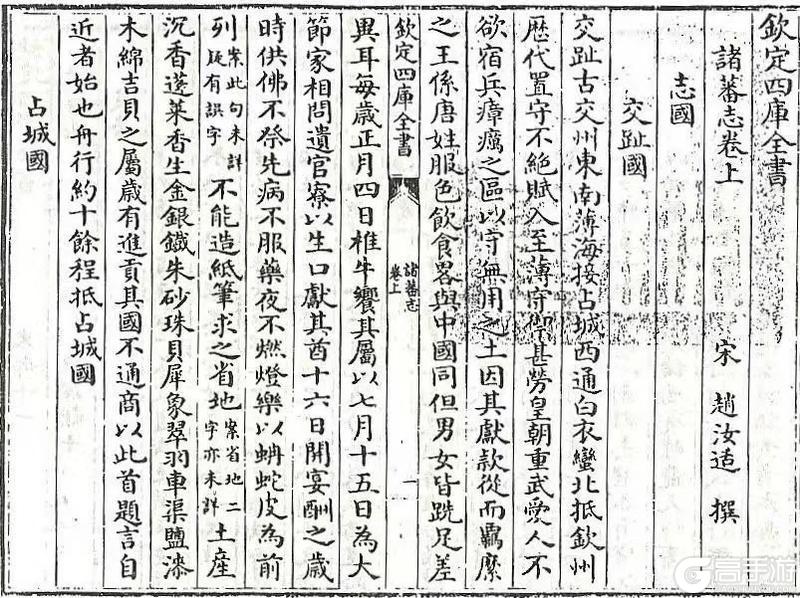 欽定四庫全書
諸蕃志卷上
宋 趙汝适 撰
志國
交趾國
交趾古交州東南薄海接占城西通白衣蠻北抵欽州
歷代置守不絕賦入至薄守禦甚勞皇朝重武愛人不
欲宿兵瘴癘之區以守無用之土因其獻款從而羈縻
之王係唐姓服色飲食畧與中國同但男女皆跣足差
欽定四庫全書
諸蕃志
卷上
一
異耳每歲正月四日椎牛饗其屬以七月十五日為大
節家相問遺官寮以生口獻其酋十六日開宴酬之歲
時供佛不祭先病不服藥夜不燃燈樂以蚺蛇皮為前
列案此句未詳疑有誤字不能造紙筆求之省地案省地二字亦未詳土産
沉香蓬萊香生金銀鐵朱砂珠貝犀象翠羽車渠鹽漆
木綿吉貝之屬歲有進貢其國不通商以此首題言自
近者始也舟行約十餘程抵占城國
占城國
高手游